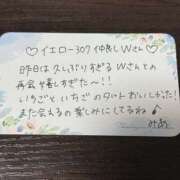 ♡イエロー307 仲良しWさん♡
昨日は久しぶりすぎるWさんとの
再会や喜しすぎた〜!!
いちごといちごのタルトおいしかった!
また会えるの楽しみにしてるね♪
みあ